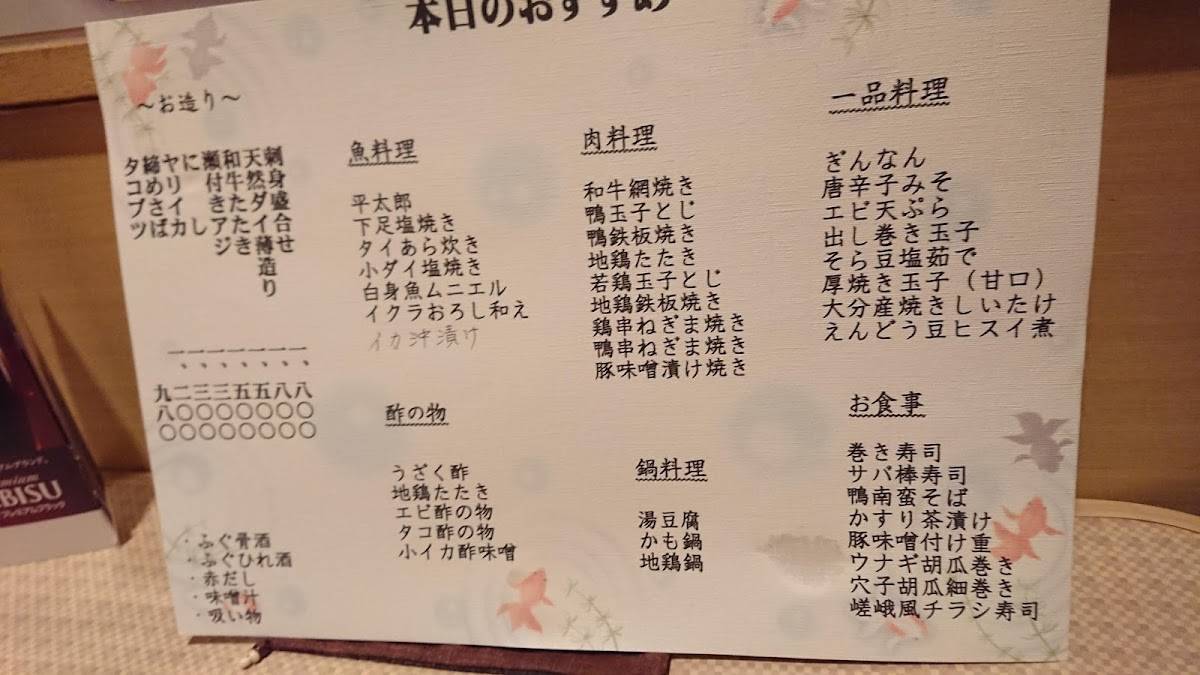 本日のおすすめ
～お造り～
刺身盛合せ 一、八〇〇
天然ダイ薄造り 一、八〇〇
和牛たたき 一、五〇〇
瀬付きアジ 一、五〇〇
にし 一、三〇〇
ヤリイカ 一、三〇〇
締めさば 一、二〇〇
タコブツ 九八〇
・ふぐ骨酒
・ふぐひれ酒
・赤だし
・味噌汁
・吸い物
魚料理
平太郎
下足塩焼き
タイあら炊き
小ダイ塩焼き
白身魚ムニエル
イクラおろし和え
イカ沖漬け
酢の物
うざく酢
地鶏たたき
エビ酢の物
タコ酢の物
小イカ酢味噌
肉料理
和牛網焼き
鴨玉子とじ
鴨鉄板焼き
地鶏たたき
若鶏玉子とじ
地鶏鉄板焼き
鶏串ねぎま焼き
鴨串ねぎま焼き
豚味噌漬け焼き
鍋料理
湯豆腐
かも鍋
地鶏鍋
一品料理
ぎんなん
唐辛子みそ
エビ天ぷら
出し巻き玉子
そら豆塩茹で
厚焼き玉子（甘口）
大分産焼きしいたけ
えんどう豆ヒスイ煮
お食事
巻き寿司
サバ棒寿司
鴨南蛮そば
かすり茶漬け
豚味噌付け重
ウナギ胡瓜巻き
穴子胡瓜細巻き
嵯峨風チラシ寿司
BISU